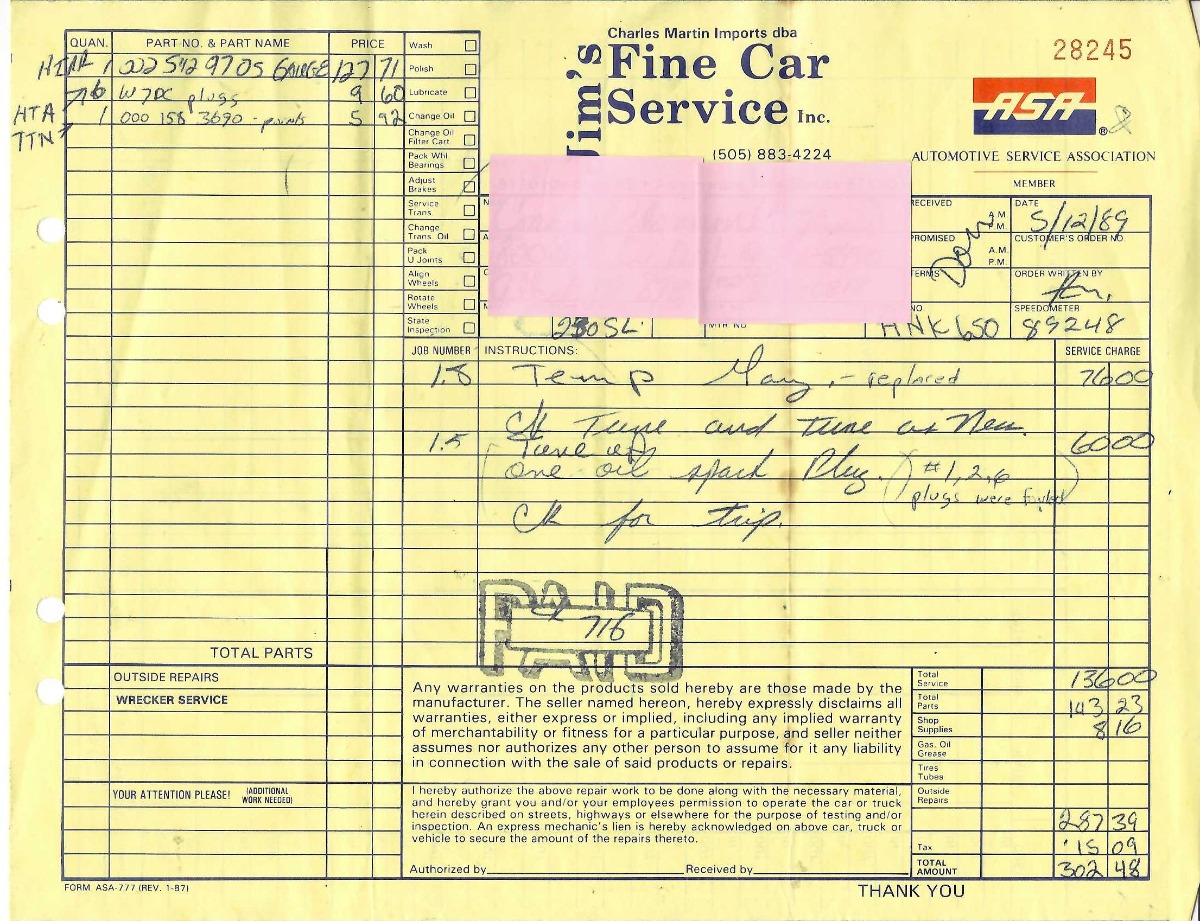 Charles Martin Imports dba
Jim's Fine Car Service Inc.
(505) 883-4224
28245
ASA ®
AUTOMOTIVE SERVICE ASSOCIATION
MEMBER
QUAN. PART NO. & PART NAME PRICE
1 GAUGE 127 71
6 W7DC plugs 9 60
HTA 1 000 158 3690 - points 5 92
TTN
Wash
Polish
Lubricate
Change Oil
Change Oil
Filter Cart.
Pack Whl
Bearings
Adjust
Brakes
Service
Trans.
Change
Trans. Oil
Pack
U Joints
Align
Wheels
Rotate
Wheels
State
Inspection
RECEIVED A.M. P.M.
DATE 5/12/89
PROMISED A.M. P.M.
CUSTOMER'S ORDER NO.
TERMS
ORDER WRITTEN BY
SPEEDOMETER
SL MTR. NO. NO HNK 650 89248
JOB NUMBER INSTRUCTIONS: SERVICE CHARGE
1.8 Temp Gaug. - replaced 76 00
Ck Tune and tune as Nec.
1.5 Tune up 60 00
one oil spark Plug. (#1, 2, 6
plugs were fouled)
Ck for trip.
PAID
Ck 716
TOTAL PARTS
OUTSIDE REPAIRS
WRECKER SERVICE
YOUR ATTENTION PLEASE! (ADDITIONAL WORK NEEDED)
Any warranties on the products sold hereby are those made by the
manufacturer. The seller named hereon, hereby expressly disclaims all
warranties, either express or implied, including any implied warranty
of merchantability or fitness for a particular purpose, and seller neither
assumes nor authorizes any other person to assume for it any liability
in connection with the sale of said products or repairs.
I hereby authorize the above repair work to be done along with the necessary material,
and hereby grant you and/or your employees permission to operate the car or truck
herein described on streets, highways or elsewhere for the purpose of testing and/or
inspection. An express mechanic's lien is hereby acknowledged on above car, truck or
vehicle to secure the amount of the repairs thereto.
Authorized by Received by
Total Service 136 00
Total Parts 143 23
Shop Supplies 8 16
Gas, Oil Grease
Tires Tubes
Outside Repairs
287 39
Tax 15 09
TOTAL AMOUNT 302 48
FORM ASA-777 (REV. 1-87)
THANK YOU